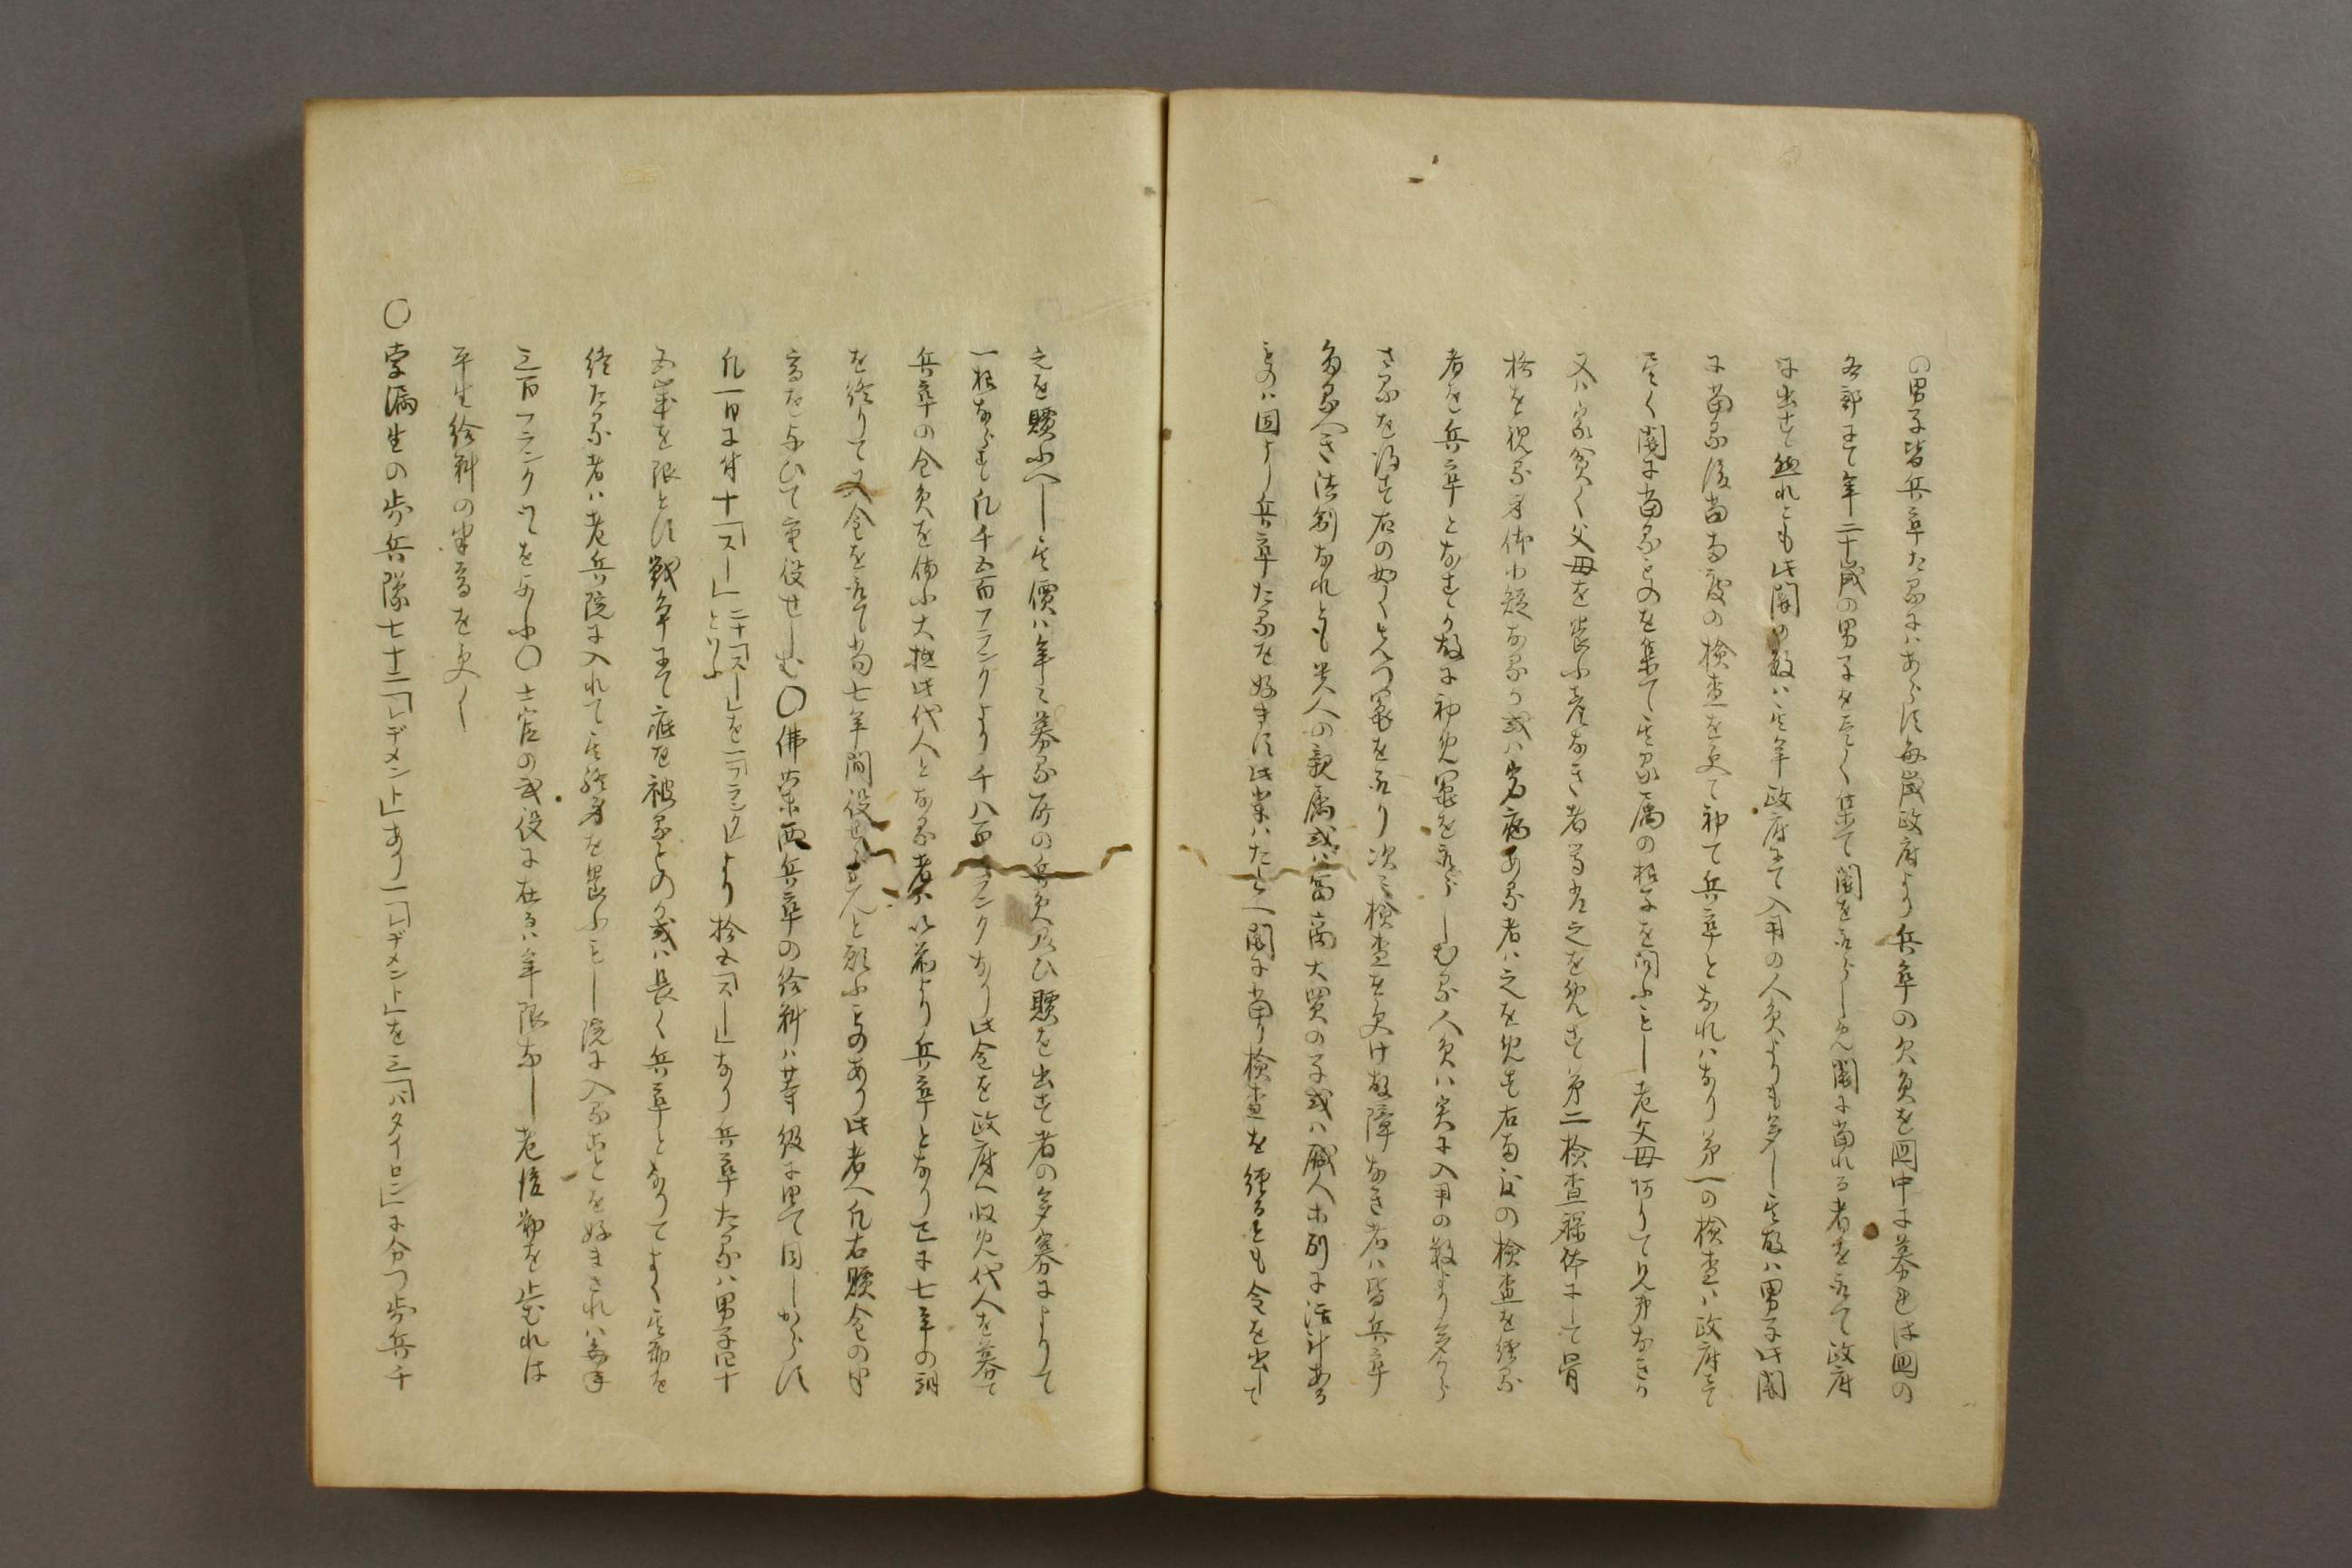 の男子皆兵卒たるにはあらす毎歳政府より兵卒の欠員を国中に募れは国の
各部にて年二十歳の男子を尽く集て鬮を取らしめ鬮に当れる者を取て政府
に出す然れとも此鬮の数は其年政府にて入用の人員よりも多し其故は男子此鬮
に当る後尚両度の検査を受て初て兵卒となれはなり第一の検査は政府にて
尽く鬮に当るものを集て其家属の様子を問ふことし老父母ありて兄弟なきか
又は家貧く父母を養ふ産なき者等は之を免す第二検査裸体にして骨
格を視る身体小短なるか或は病ある者は之を免す右両度の検査を経る
者を兵卒となすか故に初免鬮を取らしむる人員は実に入用の数より多から
さるを得す右の如く先つ鬮を取り次に検査を受け故障なき者は皆兵卒
たるへき法則なれとも貴人の親属或は富商大賈の子或は職人等別に活計ある
ものは固より兵卒たるを好ます此輩はたとへ鬮に当り検査を経るとも金を出して
之を贖ふへし其価は年々募る所の兵員及ひ贖を出す者の多寡によりて
一様ならす凡千五百フランクより千八百フランクなり此金を政府へ収免代人を募て
兵卒の全員を備ふ大抵此代人となる者は以前より兵卒となり已に七年の期
を終りて又金を取て尚七年間役せられんと願ふものあり此者へ凡右贖金の半
高を与ひて重役せしむ〇佛蘭西兵卒の給料は等級に由て同しからす
凡一日に付十「スー」二十「スー」を一「フランク」といふより拾五「スー」なり兵卒たるは男子四十
五歳を限とす戦争にて疵を被るものか或は長く兵卒となりてよく其勤を
終たる者は老兵院に入れて其終身を養ふもし院に入ることを好まされは毎年
三百フランクつゝを与ふ〇士官の戎役に在るは年限なし老後勤を止むれは
平生給料の半高を受く
〇孛漏生の歩兵隊七十二「レヂメント」あり一「レヂメント」を三「バタイロン」に分つ歩兵千